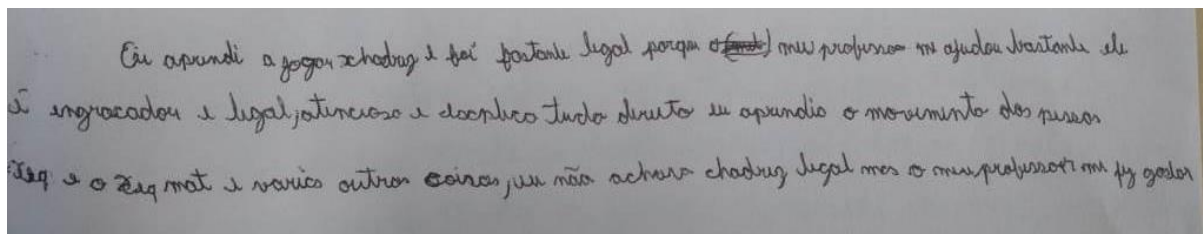 Eu aprendi a jogar xhadrez e foi bastante legal porque o meu professor me ajudou bastante ele
é engracadou e legal, atencioso e docplico tudo direito eu aprendio o movimento dos pessas
xeq e o xeq mat e varias outras coisas, eu não achava chadrez legal mas o meu professor me fez gostar